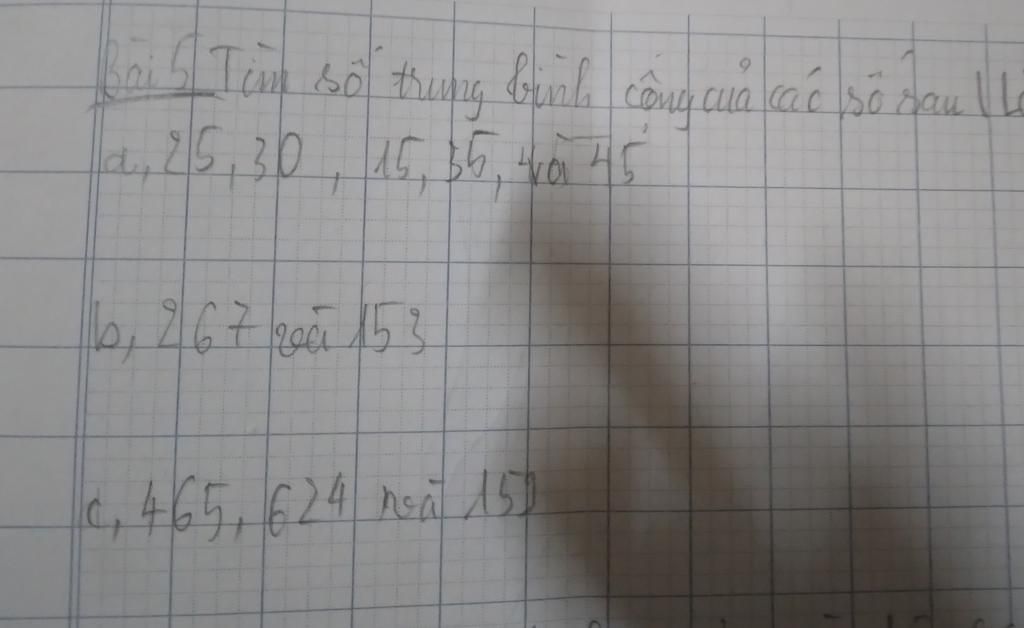 Bài 5 Tìm số trung bình cộng của các số sau
a, 25, 30, 15, 35, và 45
b, 267 và 153
c, 465, 624 và